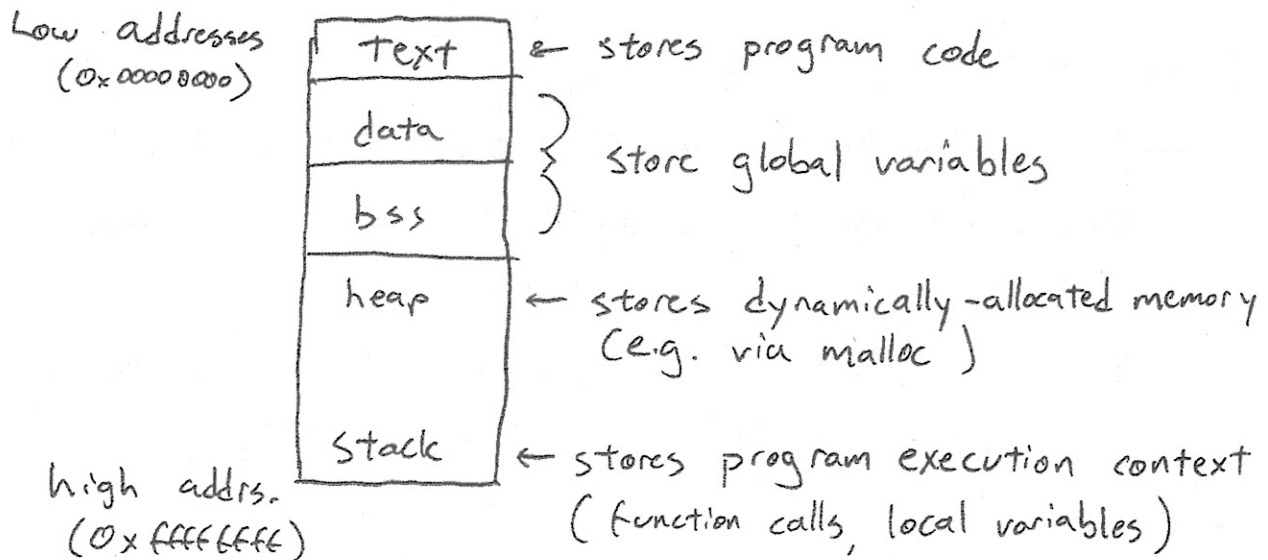 Low addresses
(0x00000000)
text
← stores program code
data
bss
store global variables
heap
← stores dynamically-allocated memory
(e.g. via malloc)
stack
← stores program execution context
(function calls, local variables)
high addrs.
(0xffffffff)